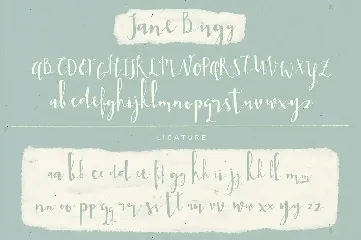 Jane Bugg
aBCDEFGHIJKLMNOPQRSTUVWXYZ
abcdefghijklmnopqrstuvwxyz
LIGATURE
aa bb cc dd ee ff gg hh ii jj kk ll mm
nn oo pp qq rr ss tt uu vv ww xx yy zz